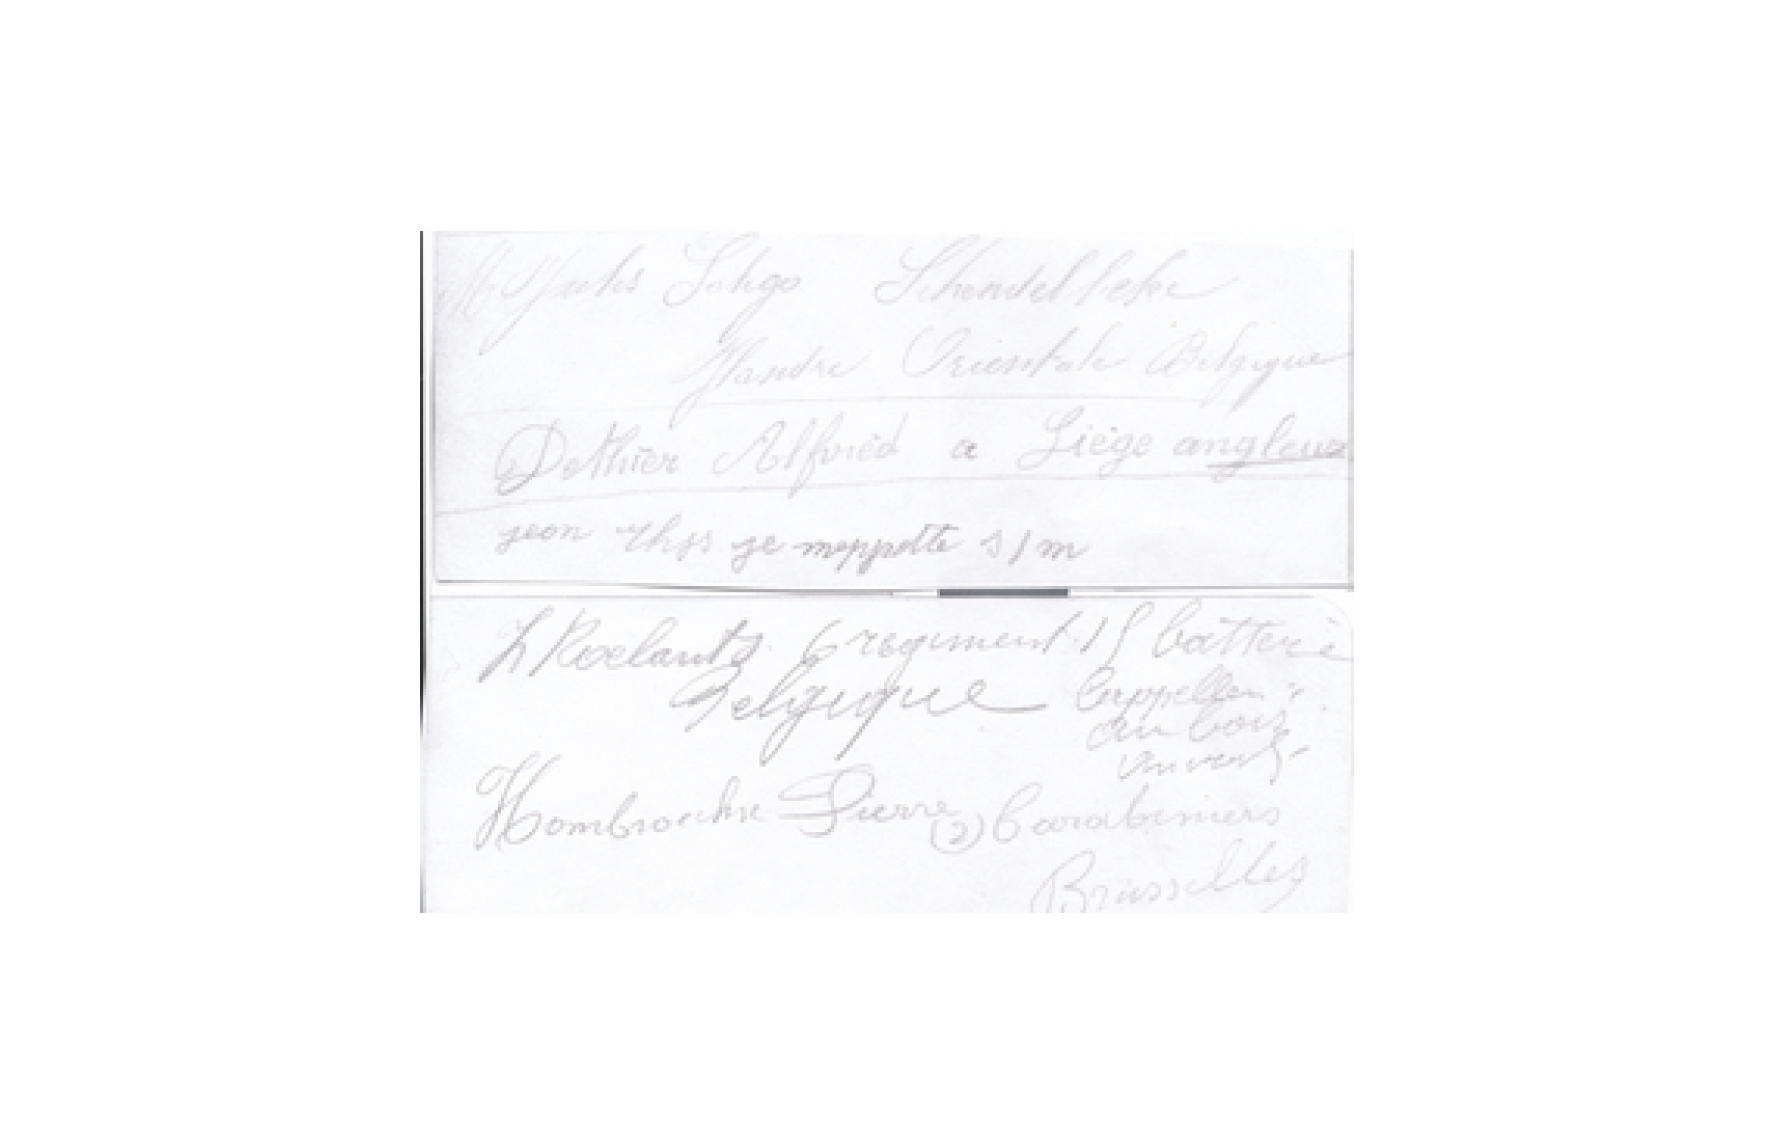 Schendelbeke
Flandre Orientale Belgique
Dethier Alfred a Liège angleur
jean thys je meppette s/m
L Roelants. 6 regiment 15 batterie
Belgique Cappellen
au bois
anvers
Hombroeckx Pierre (2) Carabiniers
Brusselles